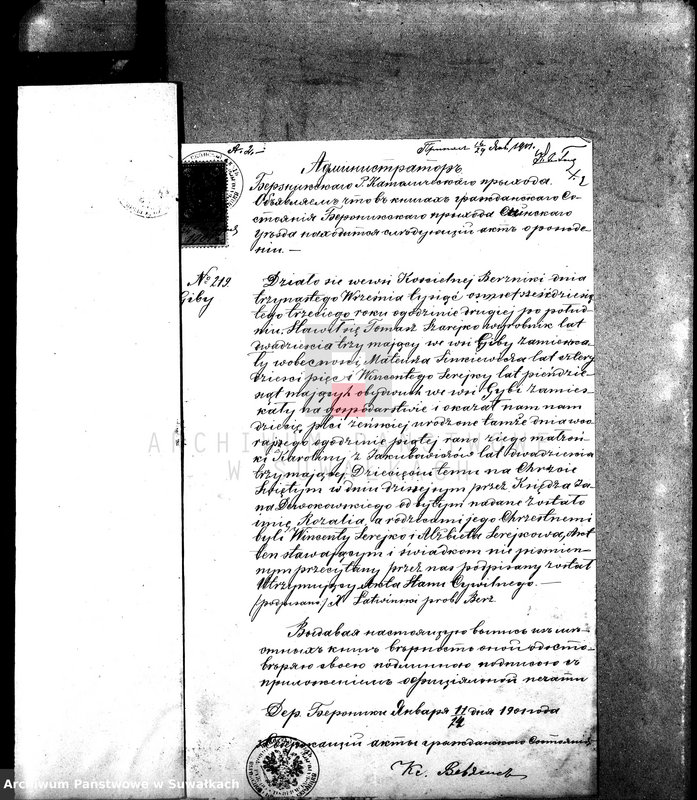 Администраторъ
Берзникскаго Р. Католическаго прихода.
Объявляемъ что въ книгахъ гражданскаго Со-
стоянія Берзникскаго прихода Сейнскаго
уѣзда находится слѣдующій актъ о рожде-
ніи. —
№ 219
Giby
Działo się we wsi Kościelnej Berzniki dnia
trzynastego Września tysiąc ośmset sześćdziesią
tego trzeciego roku o godzinie drugiej po połud
niu. Stawił się Tomasz Szarejko wyrobnik lat
dwadzieścia trzy mający we wsi Giby zamieszka
ły w obecności Mateusza Sinkiewicza lat cztery
dzieści pięć i Wincentego Serejky lat pięćdzie
siąt mających obydwóch we wsi Gibi zamiesz
kałych na gospodarstwie i okazał nam nam
dziecię płci żeńskiej urodzone tamże dnia wczo
rajszego o godzinie piątej rano z jego małżon
ki Karoliny z Jakubowiczów lat dwadzieścia
trzy mającej. Dziecięciu temu na Chrzcie
Świętym w dniu dzisiejszym przez Księdza Ja
na odbytym nadane zostało
imię Rozalia, a rodzicami jego Chrzestnemi
byli Wincenty Serejko i Alżbieta Serejkowa, Akt
ten stawającym i świadkom nie piśmien-
nym przeczytany przez nas podpisany został
Utrzymujący Akta Stanu Cywilnego. —
/podpisano/ X. Latwinski prob. Berz.
Выдавая настоящую выпись изъ мѣ-
стныхъ книгъ вѣрность оной удосто-
вѣряю своею подлинною подписью съ
приложеніемъ офиціяльной печати
Дер. Берзники Января 11/24 дня 1901 года
акты гражданскаго Состоянія
Кс.
ARCHIWUM PAŃSTWOWE
W SUWAŁKACH
Archiwum Państwowe w Suwałkach